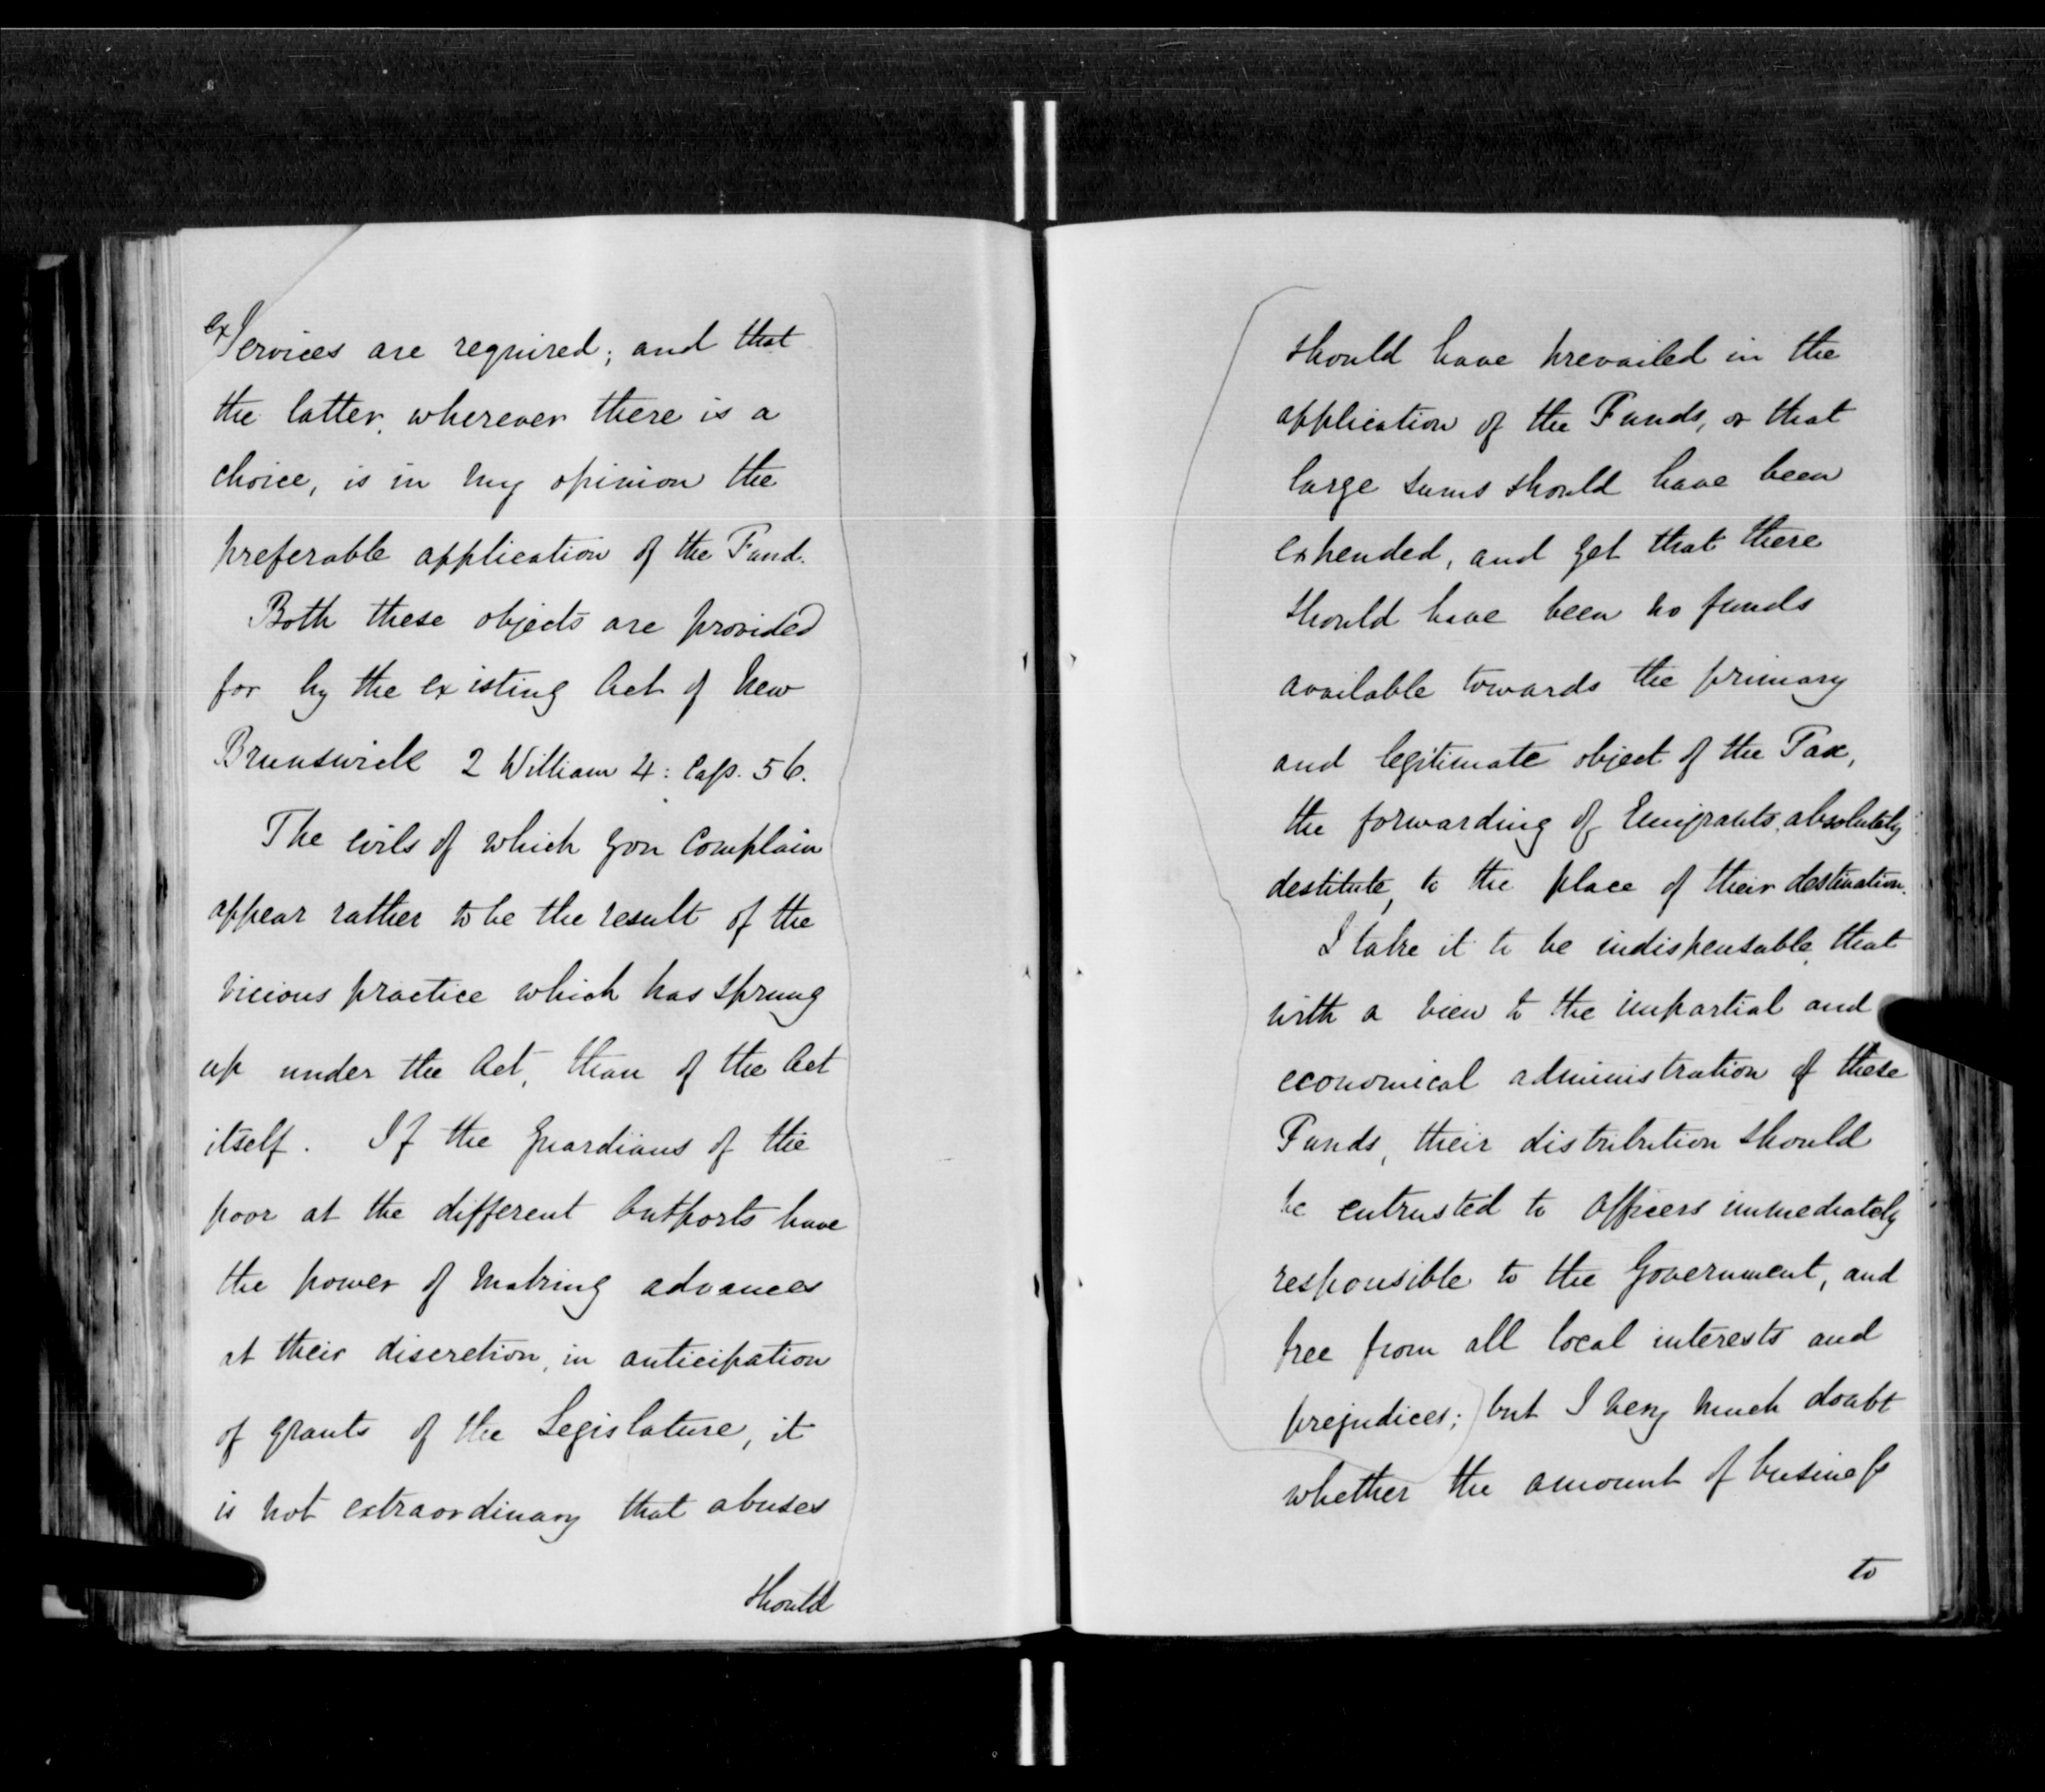 Services are required; and that
the latter, wherever there is a
choice, is in my opinion the
preferable application of the Fund.
Both these objects are provided
for by the existing Act of New
Brunswick 2 William 4: Cap. 56.
The evils of which you complain
appear rather to be the result of the
vicious practice which has sprung
up under the Act, than of the Act
itself. If the Guardians of the
poor at the different Outports have
the power of making advances
at their discretion, in anticipation
of grants of the Legislature, it
is not extraordinary that abuses
should
should have prevailed in the
application of the Funds, or that
large sums should have been
expended, and yet that there
should have been no funds
available towards the primary
and legitimate object of the Tax,
the forwarding of Emigrants, absolutely
destitute, to the place of their destination.
I take it to be indispensable, that
with a view to the impartial and
economical administration of these
Funds, their distribution should
be entrusted to Officers immediately
responsible to the Government, and
free from all local interests and
prejudices; but I very much doubt
whether the amount of business
to